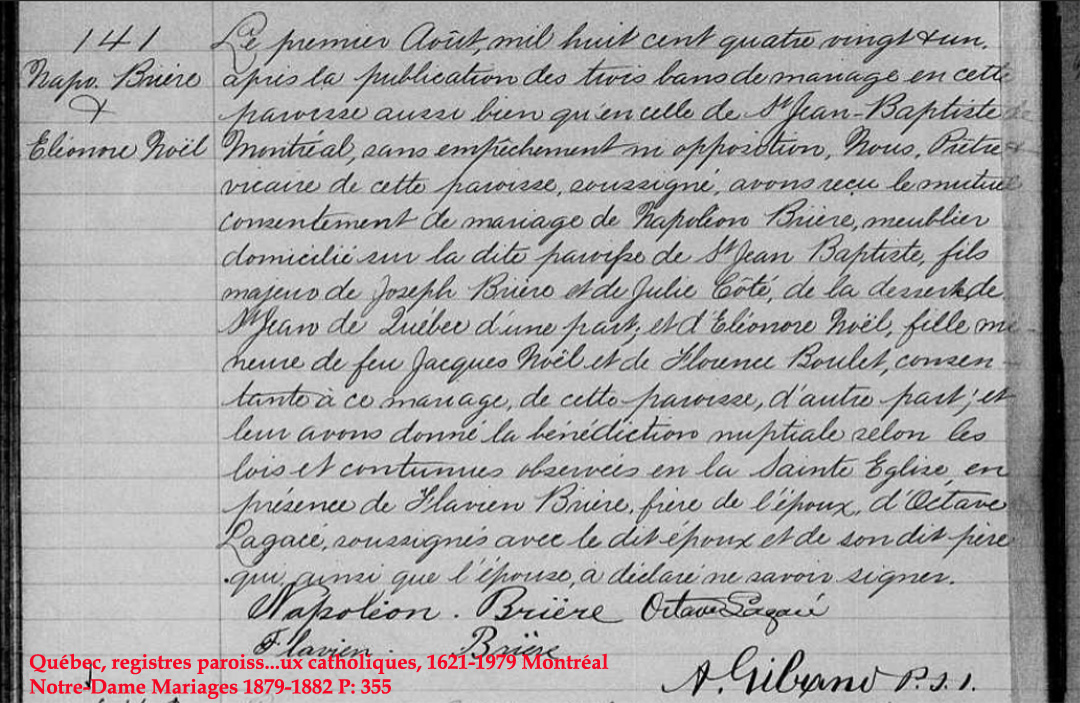 141
Napo. Brière
&
Eléonore Noël
Le premier Août, mil huit cent quatre vingt & un,
après la publication des trois bans de mariage en cette
paroisse aussi bien qu'en celle de St Jean-Baptiste de
Montréal, sans empêchement ni opposition, Nous, Prêtre
vicaire de cette paroisse, soussigné, avons reçu le mutuel
consentement de mariage de Napoléon Brière, meublier
domicilié sur la dite paroisse de St Jean Baptiste, fils
majeur de Joseph Brière et de Julie Côté, de la desserte de
St Jean de Québec d'une part; et d'Eléonore Noël, fille mi-
neure de feu Jacques Noël et de Florence Boulet, consen-
tante à ce mariage, de cette paroisse, d'autre part; et
leur avons donné la bénédiction nuptiale selon les
lois et contumes observées en la Sainte Eglise, en
présence de Flavien Brière, frère de l'époux, d'Octave
Lagacé, soussignés avec le dit époux et de son dit père
qui, ainsi que l'épouse, a déclaré ne savoir signer.
Napoléon. Brière Octave Lagacé
Flavien. Brière
A. Giband P.S.S.
Québec, registres paroiss...ux catholiques, 1621-1979 Montréal
Notre-Dame Mariages 1879-1882 P: 355